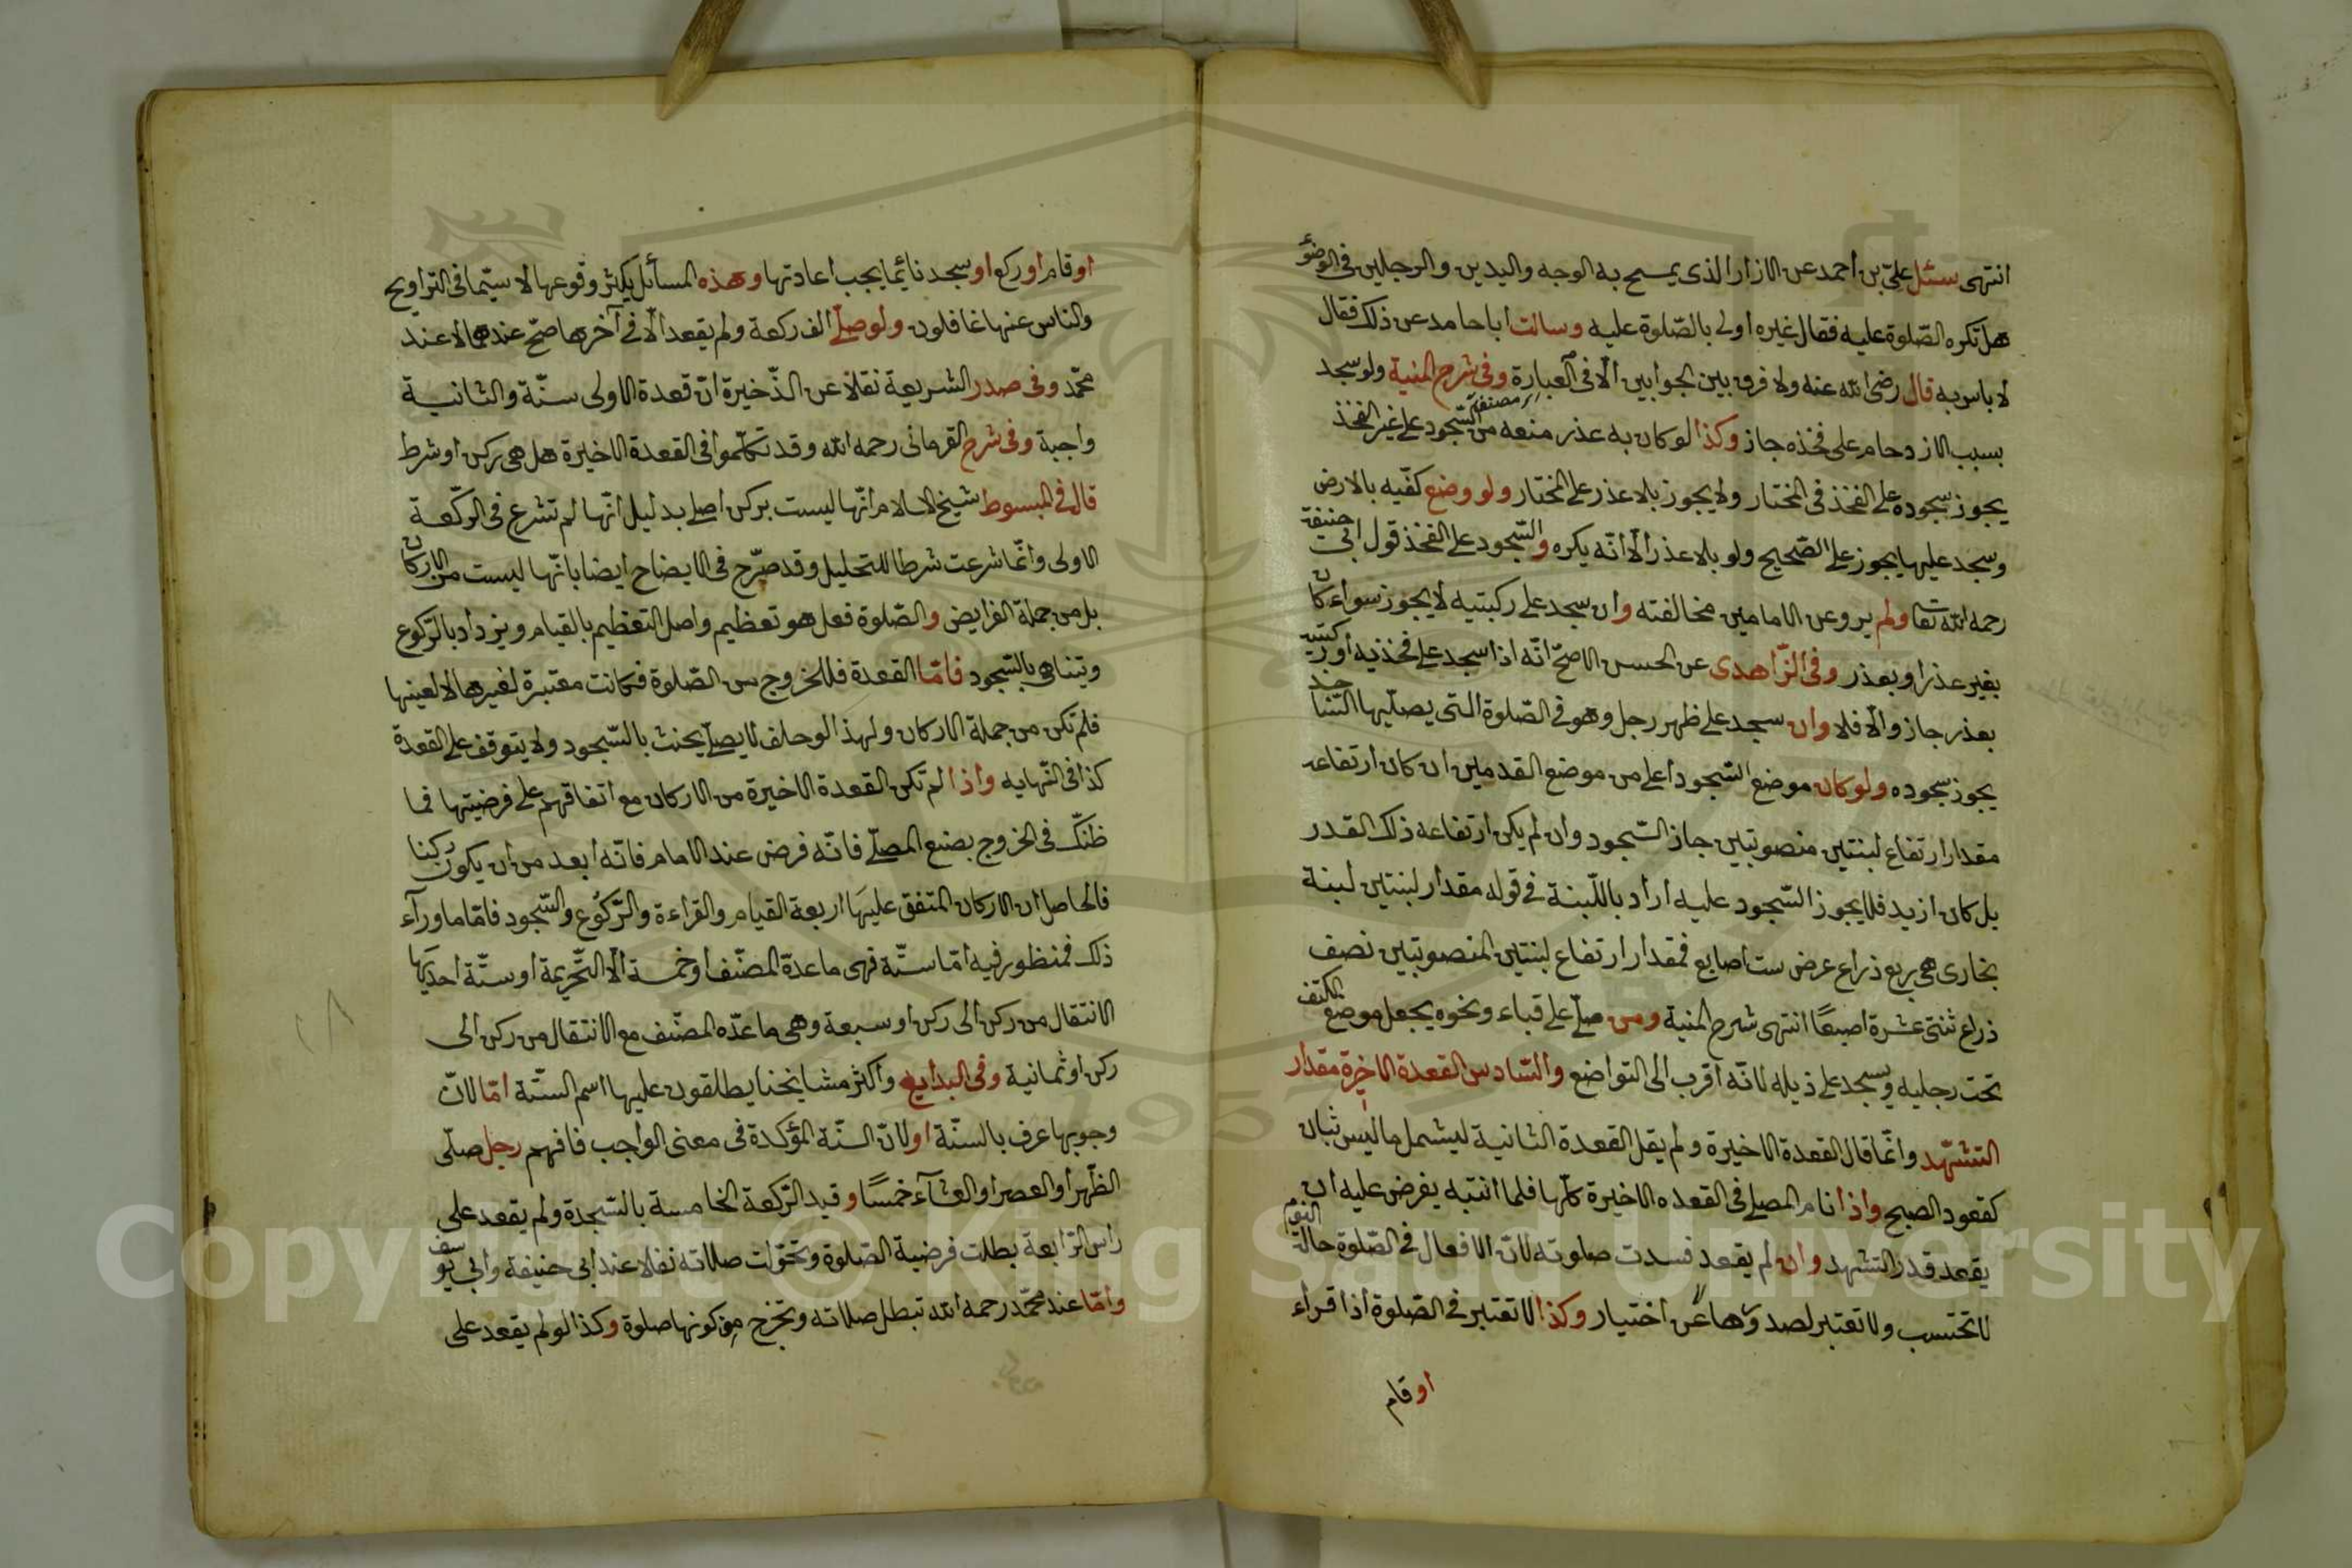 انتهى سئل علىّ بن احمد عن الازار الذى يمسح به الوجه واليدين والرجلين فى الوضؤ
هل تكره الصّلوة عليه فقال غيره اولى بالصّلوة عليه وسالت ابا حامد عن ذلك فقال
لا باس به قال رضى الله عنه ولا فرق بين الجوابين الّا فى العبارة وفى شرح المنية ولو سجد
بسبب الازدحام على فخذه جاز وكذا لو كان به عذر منعه من السّجود على غير الفخذ
يجوز سجوده على الفخذ فى المختار ولا يجوز بلا عذر على المختار ولو وضع كفّيه بالارض
وسجد عليها يجوز على الصّحيح ولو بلا عذر الّا انّه يكره والسّجود على الفخذ قول ابى حنيفة
رحمه الله تعا ولم يرو عن الامامين مخالفته وان سجد على ركبتيه لا يجوز سواء كان
بغير عذر او بعذر وفى الزّاهدى عن الحسن الاصحّ انّه اذا سجد على فخذيه او ركبتيه
بعذر جاز والّا فلا وان سجد على ظهر رجل وهو فى الصّلوة التى يصلّيها السّاجد
يجوز سجوده ولو كان موضع السّجود اعلى من موضع القدمين ان كان ارتفاعه
مقدار ارتفاع لبنتين منصوبتين جاز السّجود وان لم يكن ارتفاعه ذلك القدر
بل كان ازيد فلا يجوز السّجود عليه اراد باللّبنة فى قوله مقدار لبنتين لبنة
بخارى هى ربع ذراع عرض ست اصابع فمقدار ارتفاع لبنتين المنصوبتين نصف
ذراع ثنتى عشرة اصبعًا انتهى شرح المنية ومن صلّى على قباء ونحوه يجعل موضع الكتف
تحت رجليه ويسجد على ذيله لانّه اقرب الى التواضع والسّادس القعدة الاخيرة مقدار
التشهّد وانّما قال القعدة الاخيرة ولم يقل القعدة الثانية ليشمل ما ليس ثبان
كقعود الصبح واذا نام المصلى فى القعده الاخيرة كلّها فلما انتبه يفرض عليه ان
يقعد قدر التشهد وان لم يقعد فسدت صلوته لانّ الافعال فى الصّلوة حالة النوم
لا تحتسب ولا تعتبر لصدورها عن اختيار وكذا لا تعتبر فى الصّلوة اذا قراء
او قام
او قام او ركع او سجد نائما يجب اعادتها وهذه المسائل يكثر وقوعها لا سيّما فى التراويح
والناس عنها غافلون ولو صلّى الف ركعة ولم يقعد الّا فى آخرها صحّ عندهما لا عند
محمّد وفى صدر الشريعة نقلا عن الذّخيرة انّ قعدة الاولى سنّة والثانية
واجبة وفى شرح القرمانى رحمه الله وقد تكلّموا فى القعدة الاخيرة هل هى ركن او شرط
قال فى المبسوط شيخ الاسلام انّها ليست بركن اصلى بدليل انّها لم تشرع فى الرّكعة
الاولى وانّما شرعت شرطا للتحليل وقد صرّح فى الايضاح ايضا بانّها ليست من الاركان
بل من جملة الفرايض والصّلوة فعل هو تعظيم واصل التعظيم بالقيام ويزداد بالرّكوع
ويتناهى بالسّجود فامّا القعدة فللخروج من الصّلوة فكانت معتبرة لغيرها لا لعينها
فلم تكن من جملة الاركان ولهذا لو حلف لا يصلّى يحنث بالسّجود ولا يتوقف على القعدة
كذا فى النّهايه واذا لم تكن القعدة الاخيرة من الاركان مع اتفاقهم على فرضيتها فما
ظنّك فى الخروج بصنع المصلّى فانّه فرض عند الامام فانّه ابعد من ان يكون ركنا
فالحاصل ان الاركان المتفق عليها اربعة القيام والقراءة والرّكوع والسّجود فامّا ما ورآء
ذلك فمنظور فيه امّا ستّة فهى ما عدّة المصنّف او خمسة الّا التّحريمة او ستّة احديها
الانتقال من ركن الى ركن او سبعة وهى ما عدّه المصنّف مع الانتقال من ركن الى
ركن او ثمانية وفى البدايع واكثر مشايخنا يطلقون عليها اسم السنّة امّا لانّ
وجوبها عرف بالسنّة او لانّ السنّة المؤكدة فى معنى الواجب فافهم رجل صلّى
الظّهر او العصر او العشآء خمسًا وقيد الرّكعة الخامسة بالسّجدة ولم يقعد على
راس الرّابعة بطلت فرضية الصّلوة وتحوّلت صلاته نفلا عند ابى حنيفة وابى يوسف
وامّا عند محمّد رحمه الله تبطل صلاته وتخرج من كونها صلوة وكذا لو لم يقعد على
Copyright © King Saud University
1957